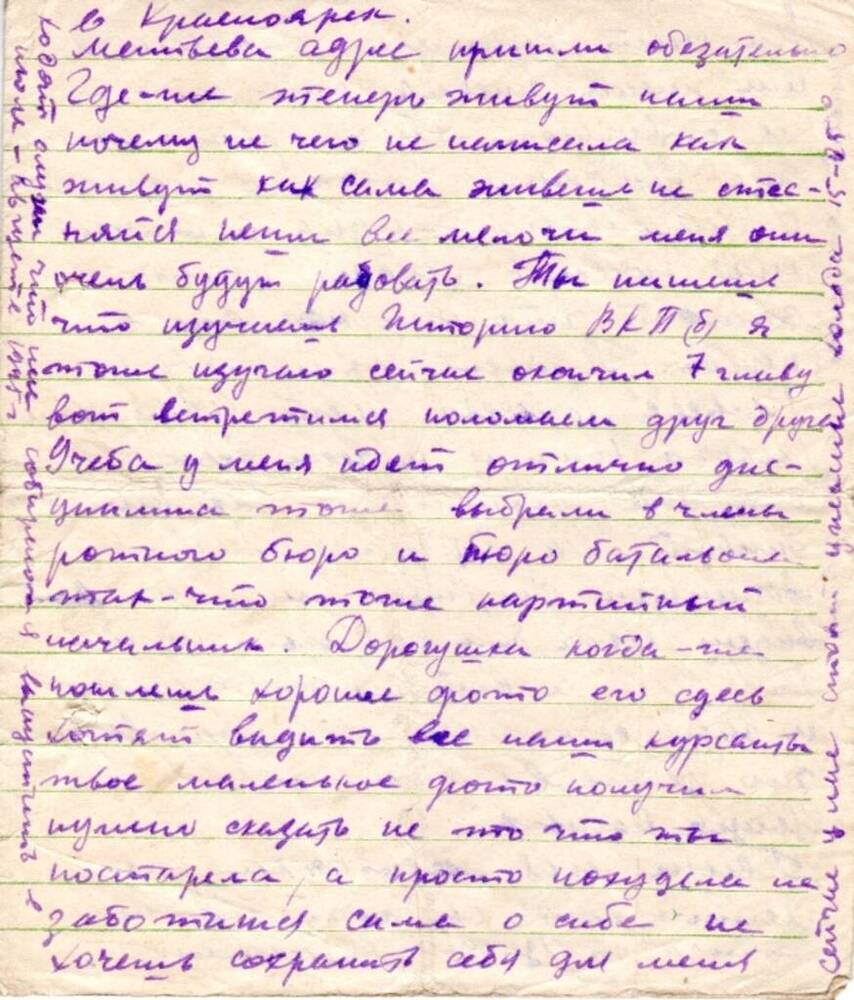 в Красноярск.
Матвеева адрес пришли обезательно
Где-же теперь живут наши
почему не чего не написала как
живут как сама живешь не стес-
няйся пиши все мелочи меня они
очень будут радовать. Ты пишешь
что изучаешь Историю ВКП(б) я
тоже изучаю сейчас окончил 7 главу
вот встретимся погоняем друг друга
Учеба у меня идет отлично дис-
циплина тоже выбрали в члены
ротного бюро и бюро батальона
так-что тоже партийный
начальник. Дорогушка когда-же
пошлешь хорошее фото его здесь
хотят видить все наши курсанты
твое маленькое фото получил
нужно сказать не то что ты
постарела, а просто похудела не
заботишся сама о себе не
хочешь сохранить себя для меня
сейчас у нас стоят ужасные холода 15-25°
ходят слухи что нас собираются выпустить в
июле - августе 1945 г